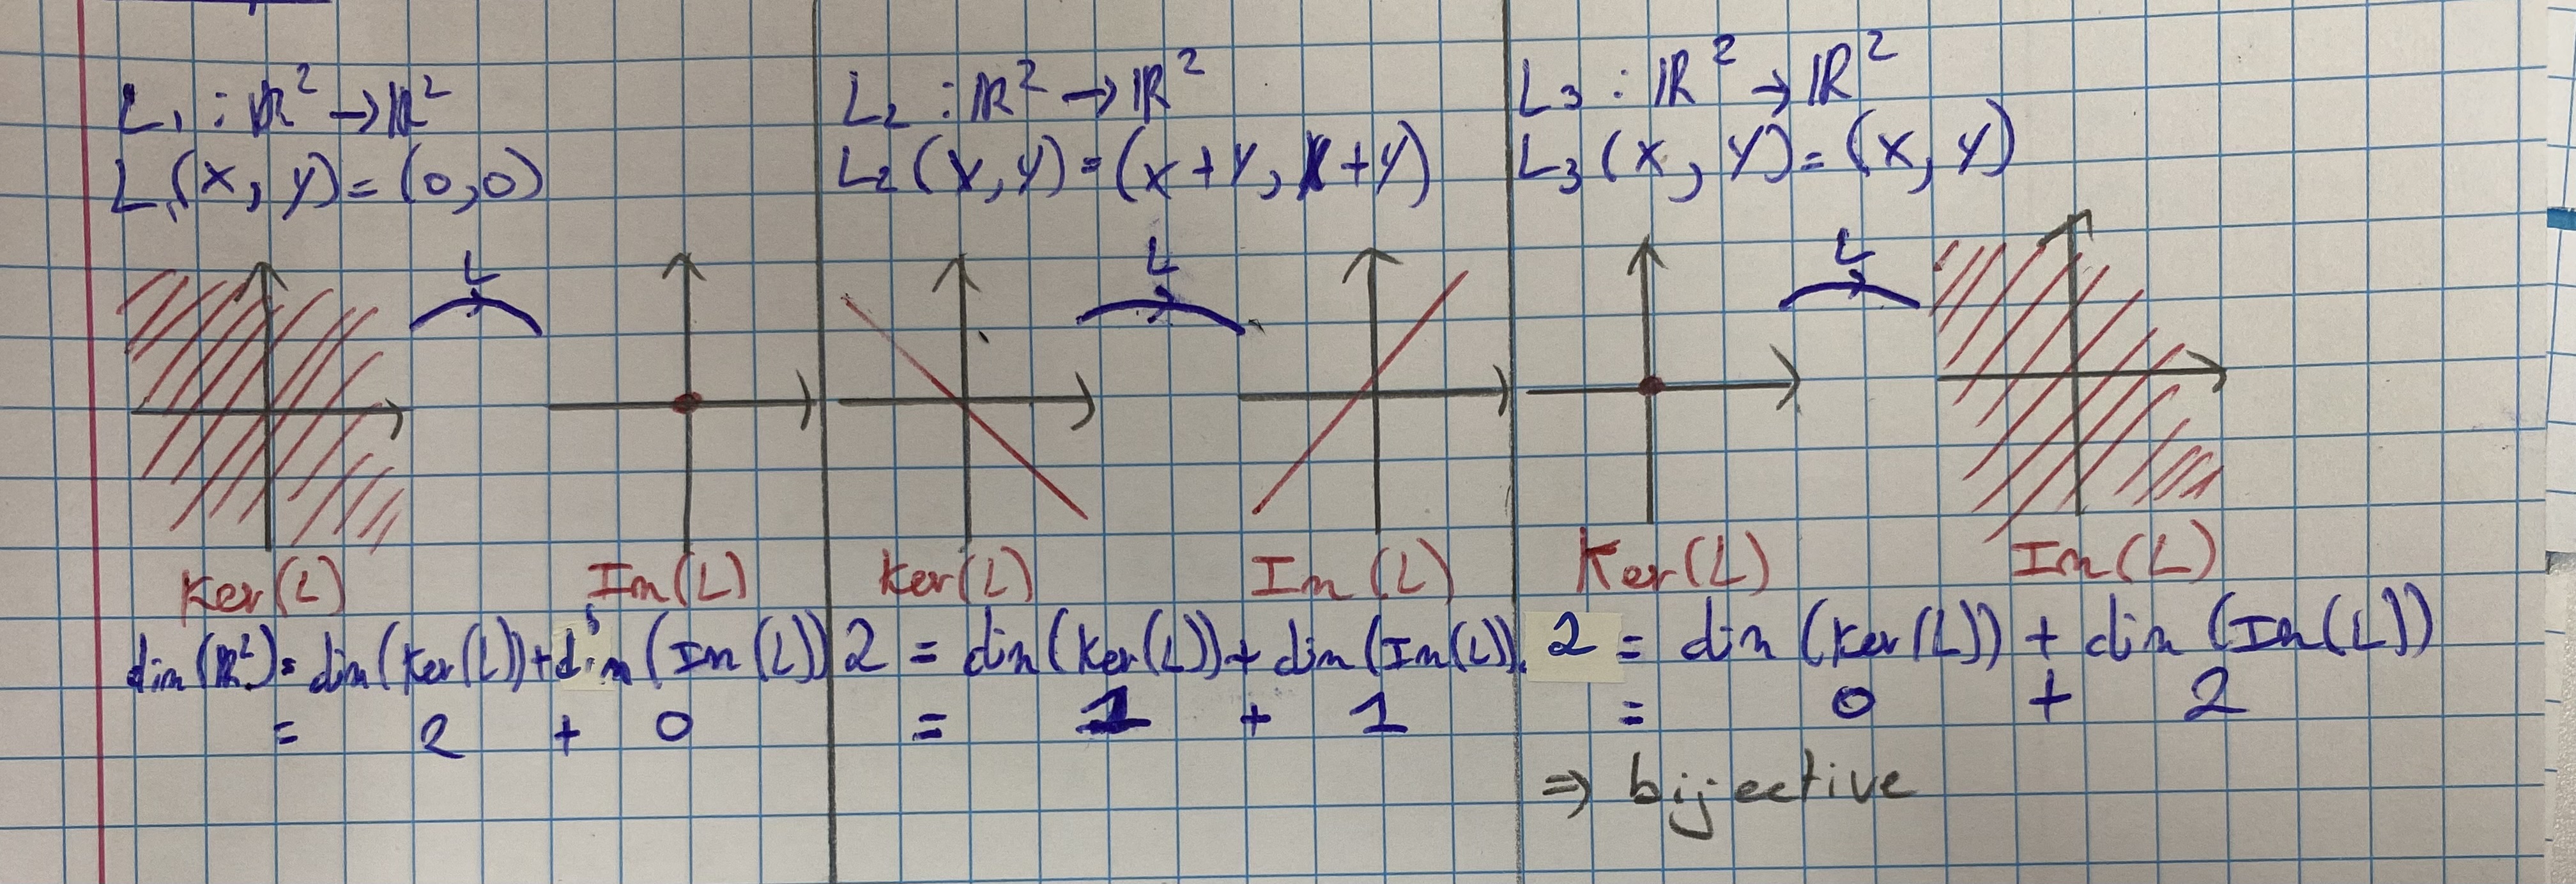 L₁ : ℝ² → ℝ²
L₁(x, y) = (0,0)
L
Ker(L)
Im(L)
dim(ℝ²) = dim(Ker(L)) + dim(Im(L))
= 2 + 0
L₂ : ℝ² → ℝ²
L₂(x,y) = (x+y, x+y)
L
Ker(L)
Im(L)
2 = dim(Ker(L)) + dim(Im(L)).
= 1 + 1
L₃ : ℝ² → ℝ²
L₃(x, y) = (x, y)
L
Ker(L)
Im(L)
2 = dim(Ker(L)) + dim(Im(L))
= 0 + 2
⇒ bijective